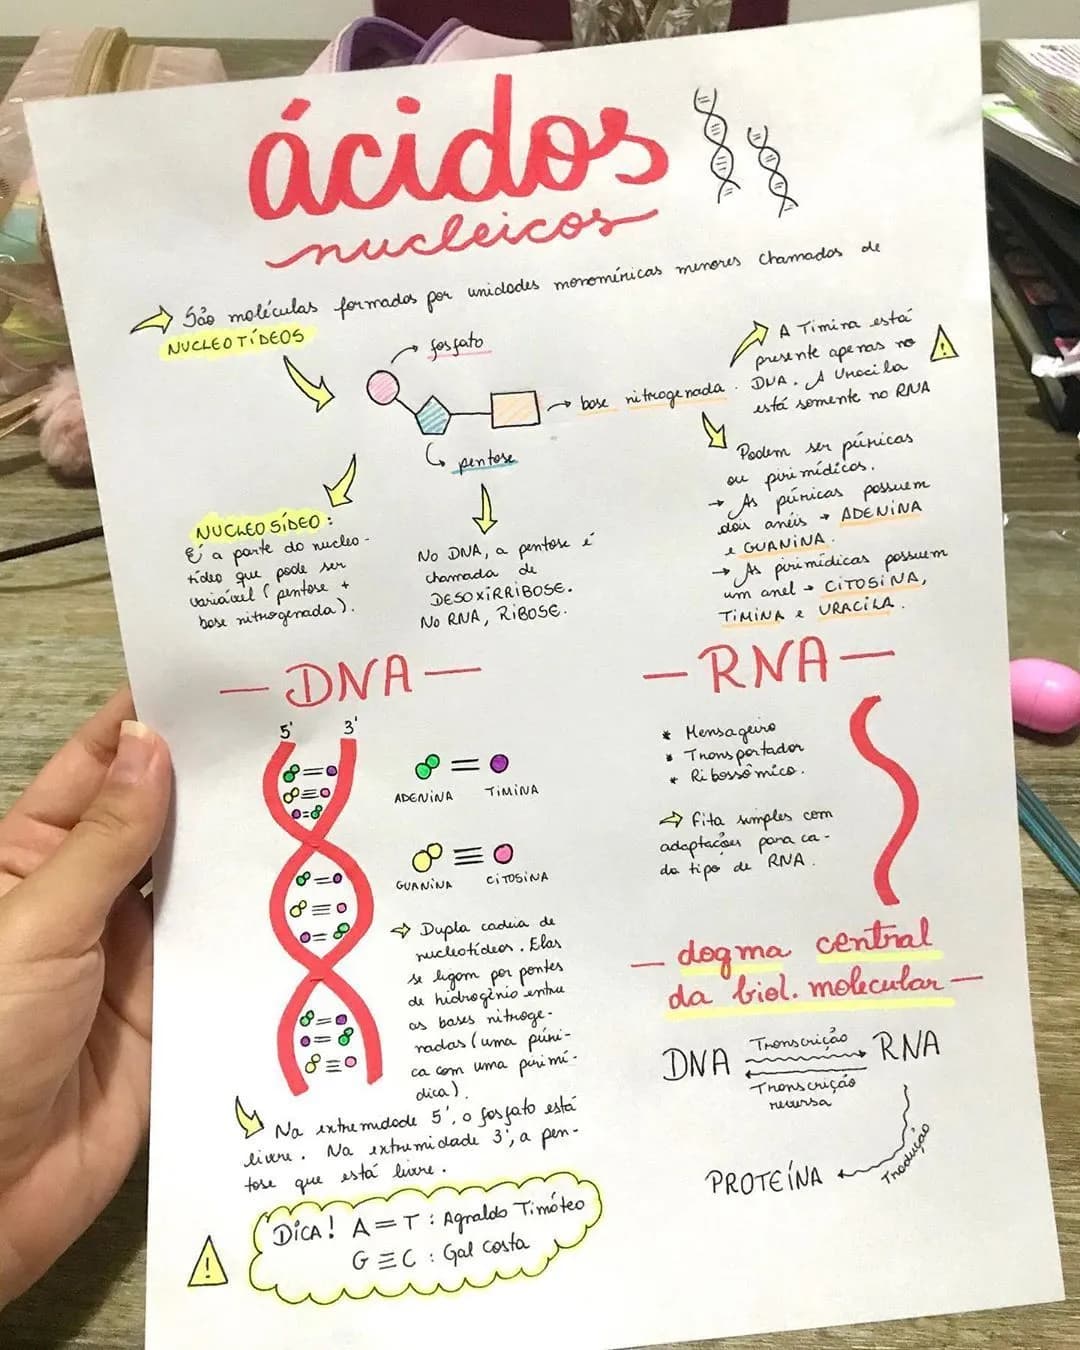 ácidos
nucleicos
São moléculas formadas por unidades monoméricas menores chamados de
NUCLEOTÍDEOS
fosfato
base nitrogenada.
pentose
A Timina está
presente apenas no
DNA. A Uracila
está somente no RNA
!
Podem ser púricas
ou pirimídicas.
→ As púricas possuem
dois anéis → ADENINA
e GUANINA.
→ As pirimídicas possuem
um anel → CITOSINA,
TIMINA e URACILA.
NUCLEOSÍDEO:
É a parte do nucleo-
tídeo que pode ser
variável (pentose +
base nitrogenada).
No DNA, a pentose é
chamada de
DESOXIRRIBOSE.
No RNA, RIBOSE.
— DNA —
5' 3'
ADENINA TIMINA
GUANINA CITOSINA
Dupla cadeia de
nucleotídeos. Elas
se ligam por pontes
de hidrogênio entre
as bases nitroge-
nadas (uma púri-
ca com uma pirimí-
dica).
Na extremidade 5', o fosfato está
livre. Na extremidade 3', a pen-
tose que está livre.
!
DICA! A=T: Agnaldo Timóteo
G≡C: Gal Costa
— RNA —
* Mensageiro
* Transportador
* Ribossômico.
Fita simples com
adaptações para ca-
da tipo de RNA.
— dogma central
da biol. molecular —
DNA Transcrição RNA
Transcrição
reversa
Tradução
PROTEÍNA